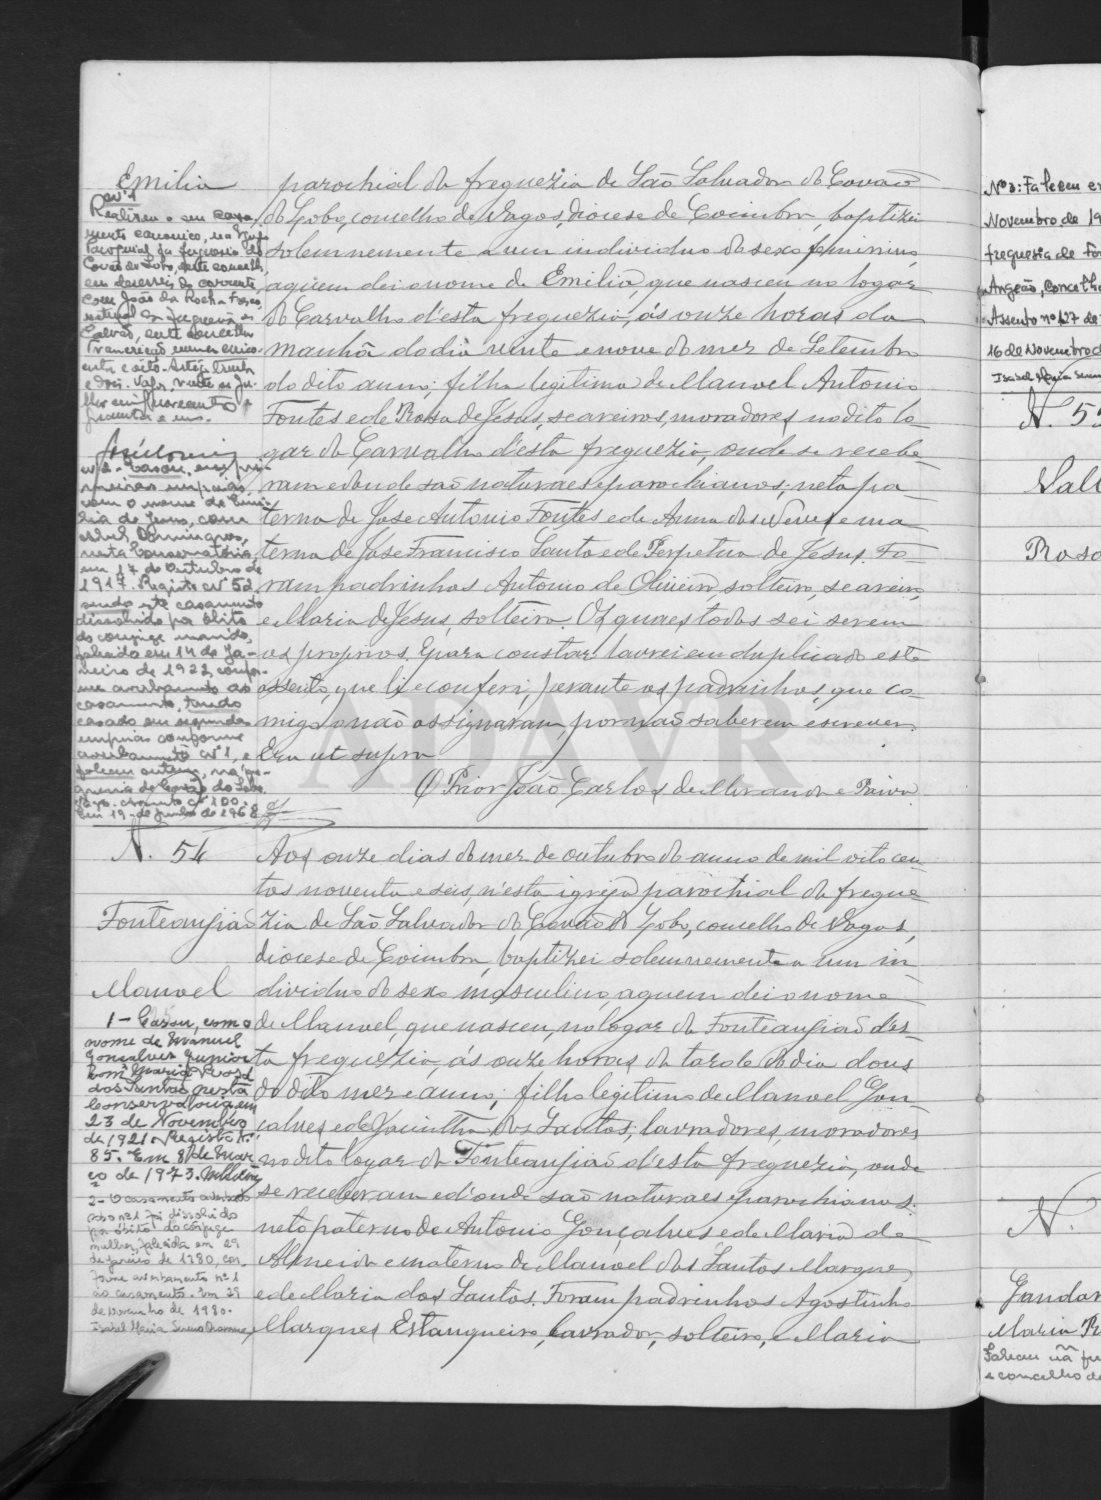 Emilia
Nº 1
Realizou o seu casa-
mento canonico, na Igreja
Paroquial da freguesia de
Covão do Lobo, deste concelho,
em dezeseis do corrente,
com João da Rocha Fresco
natural da freguesia de
Calvão, deste concelho
Transcrição numero cinco-
enta e oito. Artigo trinta
e dois. Vagos, vinte de Ju-
lho mil novecentos e
quarenta e um.
Nº 2- Casou, em pri-
meiras nupcias,
com o nome de Emi-
lia de Jesus, com
Domingues,
nesta Conservatória
em 17 de Outubro de
1917. Registo Nº 52
sendo este casamento
dissolvido por óbito
do conjuge marido,
falecido em 14 de Ja-
neiro de 1922, confor-
me averbamento ao
casamento, tendo
casado em segundas
nupcias conforme
averbamento Nº 1, e
faleceu ontem, na fre-
guesia de Covão do Lobo
Vagos. Assento nº 100.
Em 19 de Junho de 1968
parochial da freguezia de São Salvador do Covão
do Lobo, concelho de Vagos, diocese de Coimbra, baptizei
solemnemente a um individuo do sexo feminino,
a quem dei o nome de Emilia, que nasceu no logar
do Carvalho d'esta freguezia, ás onze horas da
manhã do dia vinte e nove do mez de Setembro
do dito anno; filha legitima de Manoel Antonio
Fontes e de Rosa de Jesus, seareiros, moradores no dito lo-
gar do Carvalho d'esta freguezia, onde se recebe-
ram e donde são naturaes e parochianos; neta pa-
terna de Jose Antonio Fontes e de Anna das Neves e ma
terna de Jose Francisco Santo e de Perpetua de Jesus. Fo-
ram padrinhos Antonio de Oliveira, solteiro, seareiro,
e Maria de Jesus, solteira. Os quaes todos sei serem
os proprios. E para constar lavrei em duplicado este
assento, que li e conferi, perante os padrinhos, que co-
migo não assignaram, por não saberem escrever.
Era ut supra
O Prior João Carlos de Miranda e Paiva
N. 54
Fonteangião
Manoel
1- Casou, com o
nome de Manuel
Gonçalves Junior
com Maria Rosa
dos Santos, nesta
Conservatoria, em
23 de Novembro
de 1921. Registo nº
85. Em 8 de Mar-
ço de 1973.
2- O casamento averbado
sob o nº 1 foi dissolvido
por óbito do cônjuge
mulher, falecida em 29
de Janeiro de 1980, con-
forme averbamento nº 1
ao casamento. Em 29
de de 1980.
Isabel Maria
Aos onze dias do mez de outubro do anno de mil oito cen-
tos noventa e seis, n'esta igreja parochial da fregue-
zia de São Salvador do Covão do Lobo, concelho de Vagos,
diocese de Coimbra, baptizei solemnemente a um in-
dividuo do sexo masculino, a quem dei o nome
de Manoel, que nasceu, no logar da Fonteangião d'es-
ta freguezia, ás onze horas da tarde do dia dous
do dito mez e anno; filho legitimo de Manoel Gon-
calves e de Jacintha dos Santos, lavradores, moradores
no dito logar da Fonteangião d'esta freguezia, onde
se receberam e d'onde são naturaes e parochianos:
neto paterno de Antonio Gonçalves e de Maria de
Almeida e materno de Manoel dos Santos Marques,
e de Maria dos Santos. Foram padrinhos Agostinho
Marques Estanqueiro, lavrador, solteiro, e Maria
ADAVR
Nº 3: Faleceu
Novembro de 19
freguesia de Fon
Angeão, Concelho
Assento nº 127 de
16 de Novembro
Isabel Maria
N. 55
Vall
Rosa
N.
Gandar
Maria R
Faleceu na fre
e concelho de